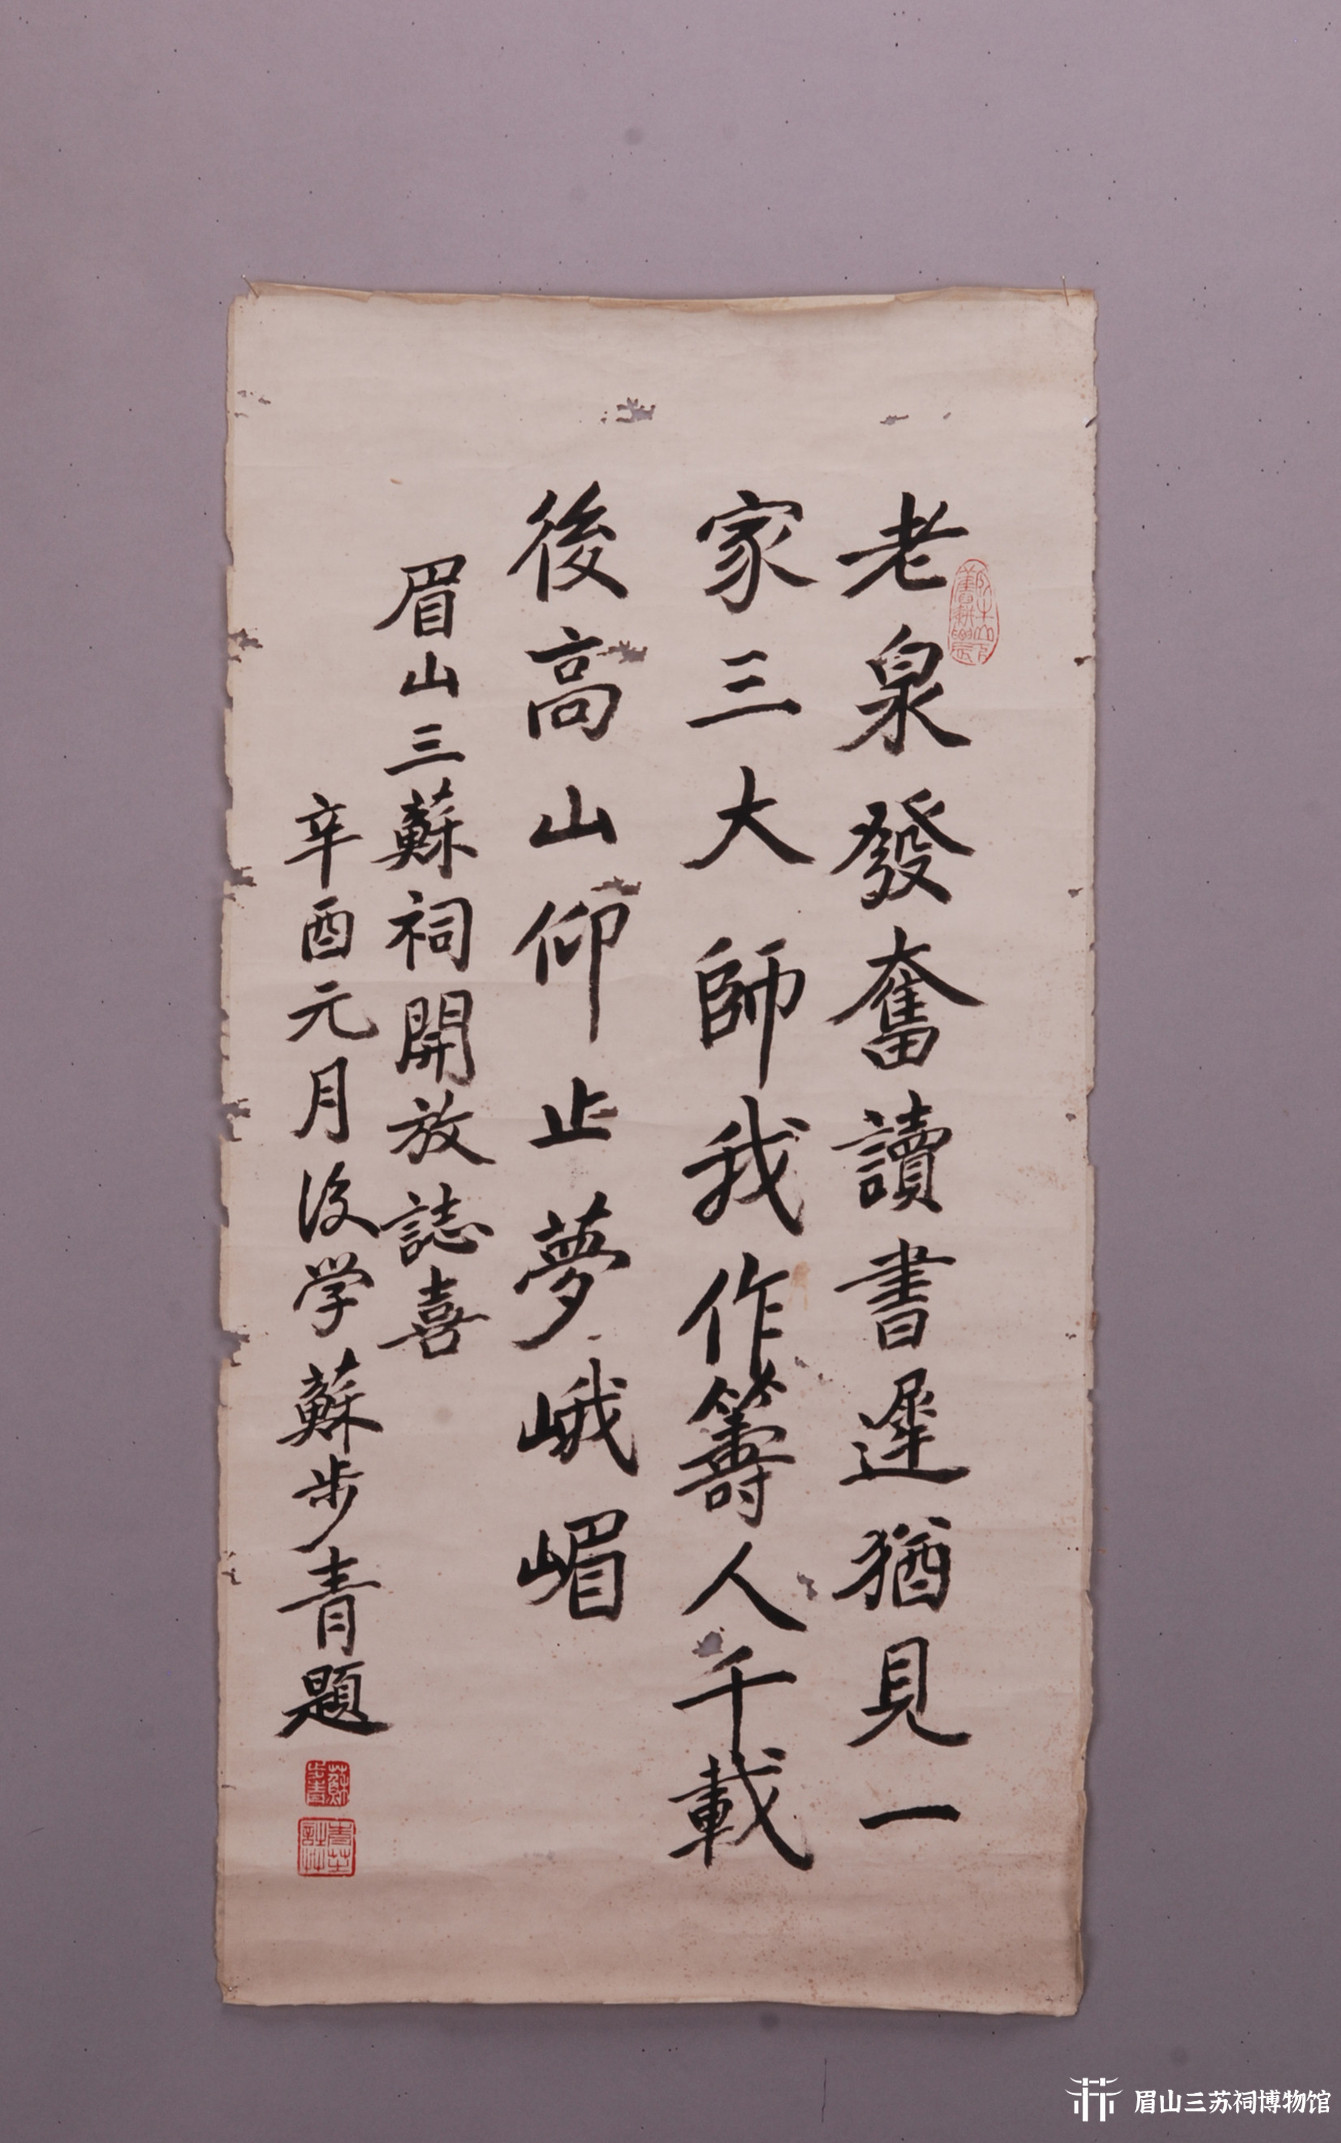 老泉發奮讀書遲猶見一
家三大師我作籌人千載
後高山仰止夢峨嵋
眉山三蘇祠開放誌喜
辛酉元月後学蘇步青題
蘇步青
眉山三苏祠博物馆